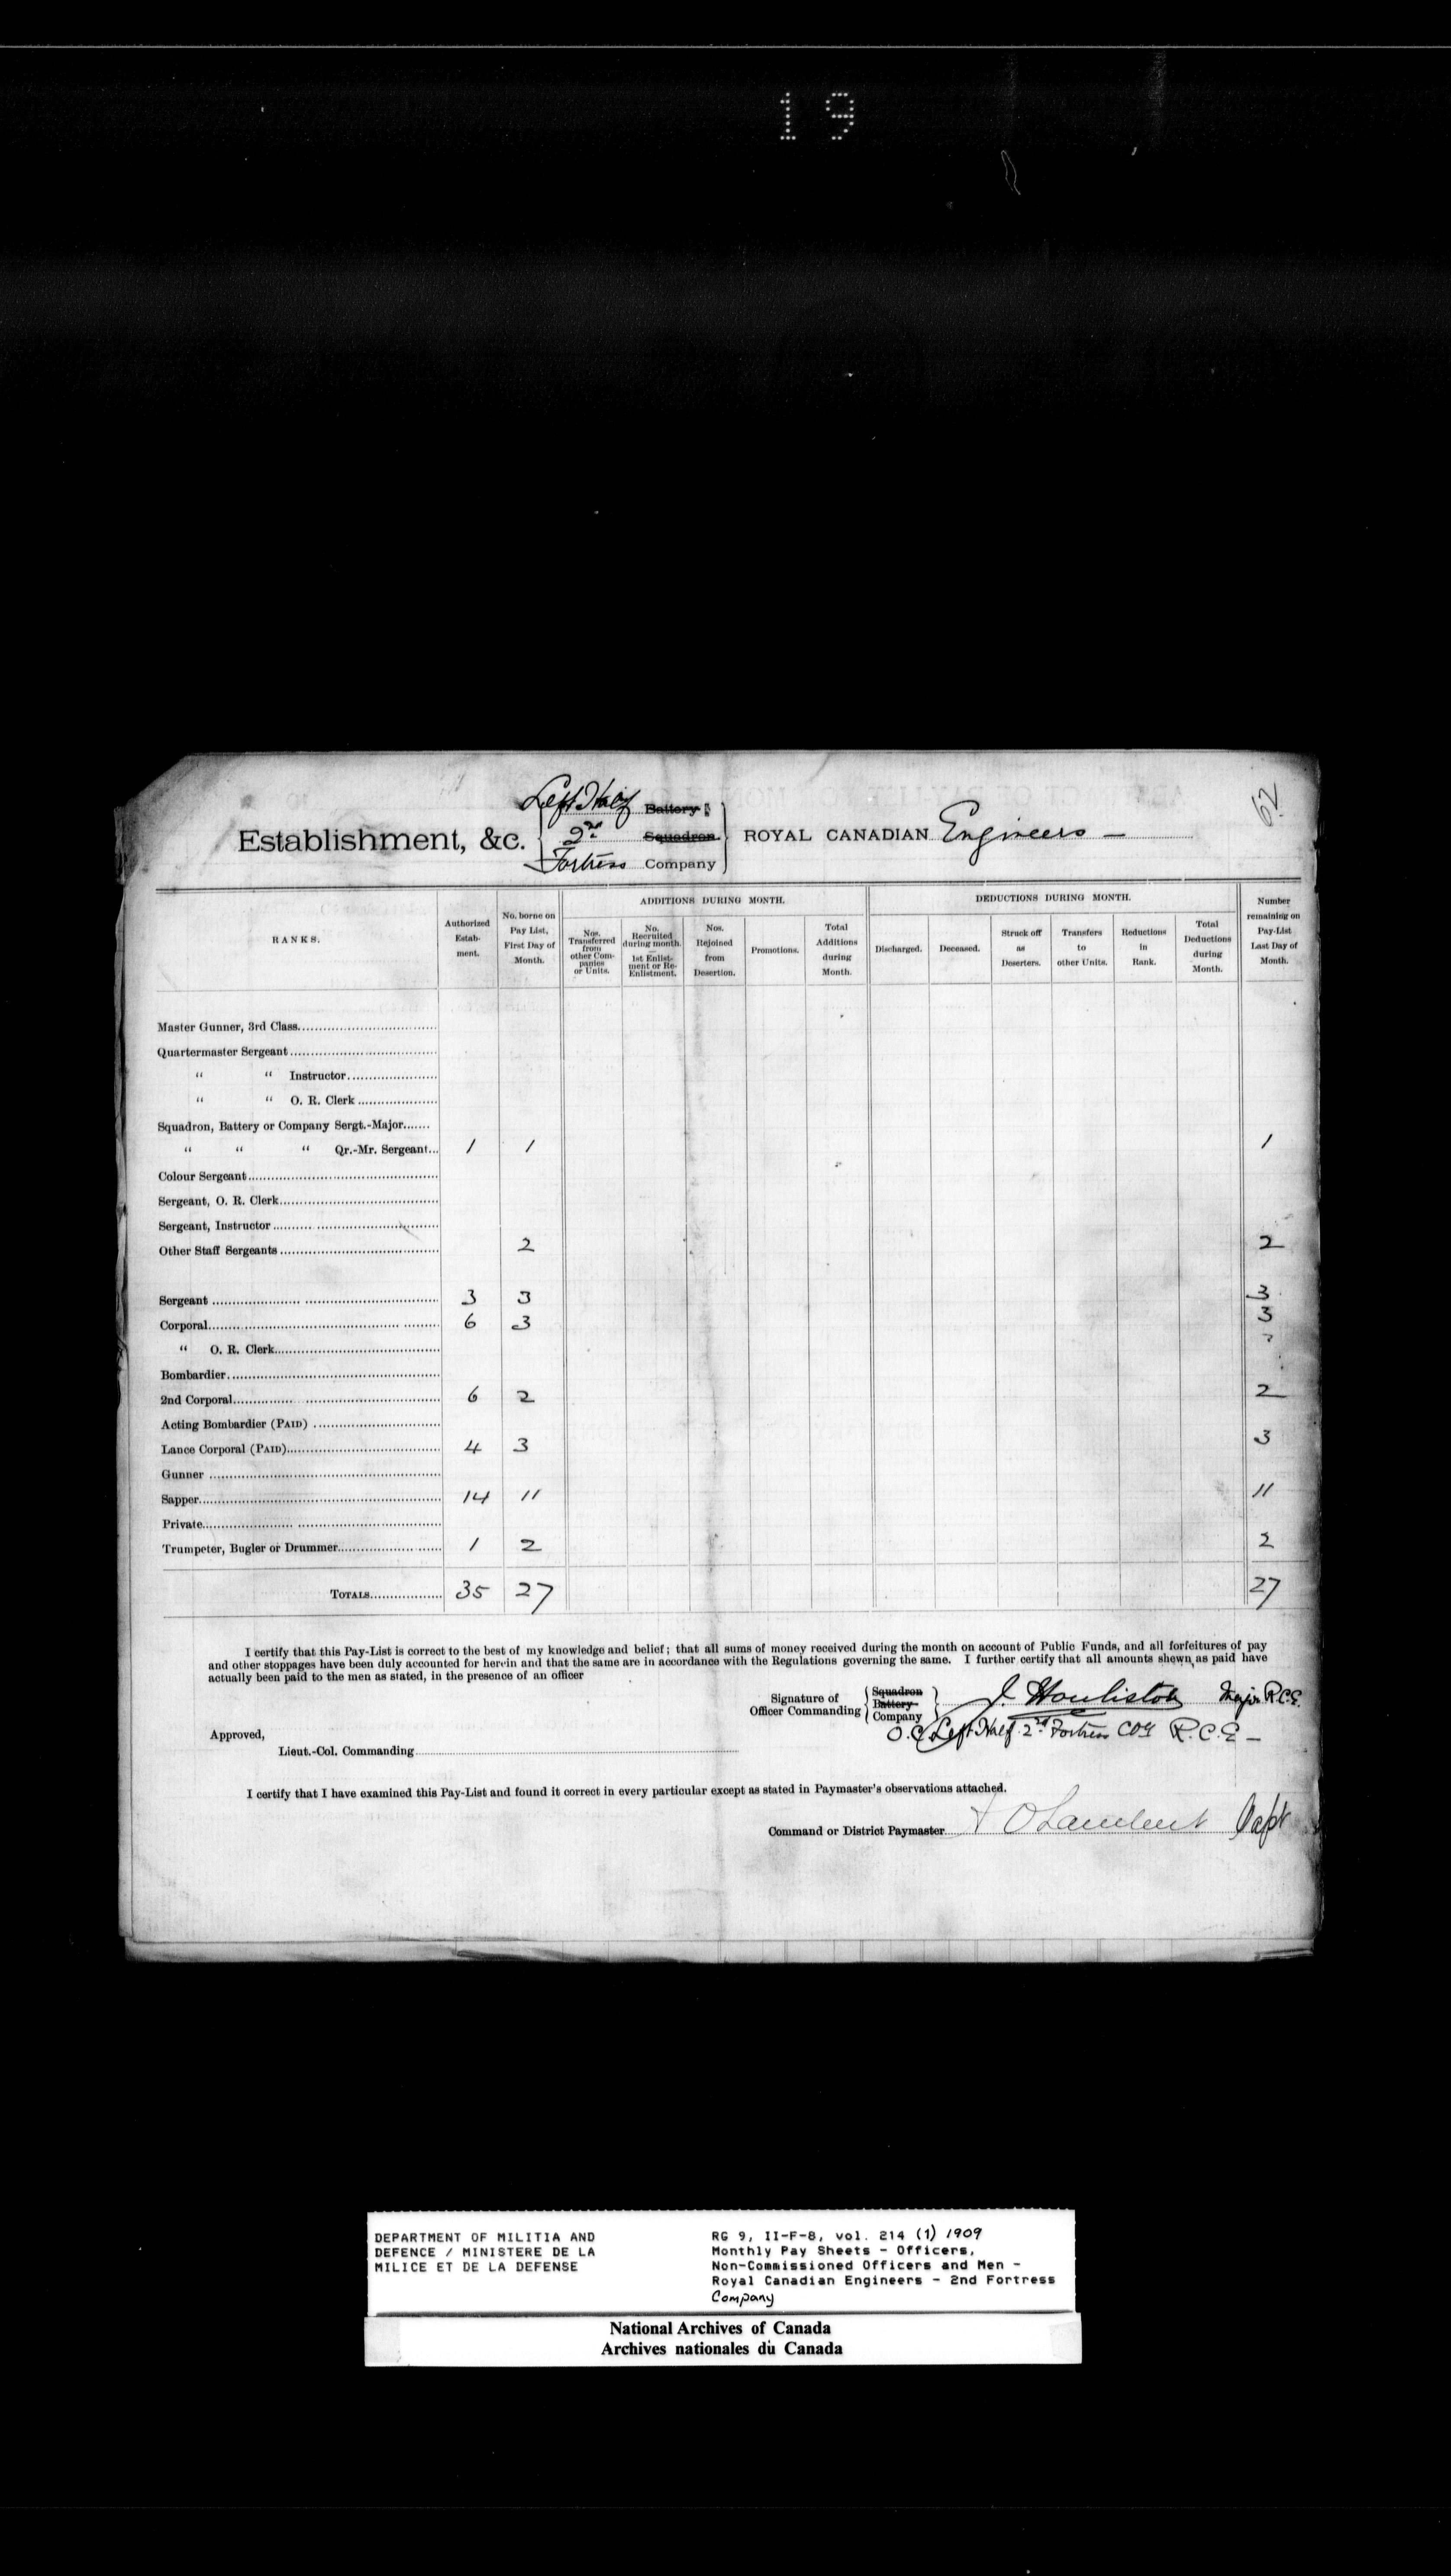 19
62
Left Half Battery
Establishment, &c. 2nd Squadron ROYAL CANADIAN Engineers —
Fortress Company
RANKS.
Authorized Establish-
ment.
No. borne on Pay List, First Day of Month.
ADDITIONS DURING MONTH.
Nos. Transferred from other Companies or Units.
No. Recruited during month. — 1st Enlistment or Re-Enlistment.
Nos. Rejoined from Desertion.
Promotions.
Total Additions during Month.
DEDUCTIONS DURING MONTH.
Discharged.
Deceased.
Struck off as Deserters.
Transfers to other Units.
Reductions in Rank.
Total Deductions during Month.
Number remaining on Pay-List Last Day of Month.
Master Gunner, 3rd Class
Quartermaster Sergeant
“ “ Instructor
“ “ O. R. Clerk
Squadron, Battery or Company Sergt.-Major
“ “ “ Qr.-Mr. Sergeant 1 1 1
Colour Sergeant
Sergeant, O. R. Clerk
Sergeant, Instructor
Other Staff Sergeants 2 2
Sergeant 3 3 3
Corporal 6 3 3
“ O. R. Clerk
Bombardier
2nd Corporal 6 2 2
Acting Bombardier (PAID)
Lance Corporal (PAID) 4 3 3
Gunner
Sapper 14 11 11
Private
Trumpeter, Bugler or Drummer 1 2 2
TOTALS 35 27 27
I certify that this Pay-List is correct to the best of my knowledge and belief; that all sums of money received during the month on account of Public Funds, and all forfeitures of pay
and other stoppages have been duly accounted for herein and that the same are in accordance with the Regulations governing the same. I further certify that all amounts shewn as paid have
actually been paid to the men as stated, in the presence of an officer
Signature of Officer Commanding Squadron Battery Company J. Houliston Major R.C.E.
O.C. Left Half 2nd Fortress Coy R.C.E —
Approved,
Lieut.-Col. Commanding
I certify that I have examined this Pay-List and found it correct in every particular except as stated in Paymaster's observations attached.
Command or District Paymaster Lambert Capt
DEPARTMENT OF MILITIA AND
DEFENCE / MINISTERE DE LA
MILICE ET DE LA DEFENSE
RG 9, II-F-8, vol. 214 (1) 1909
Monthly Pay Sheets - Officers,
Non-Commissioned Officers and Men -
Royal Canadian Engineers - 2nd Fortress
Company
National Archives of Canada
Archives nationales du Canada